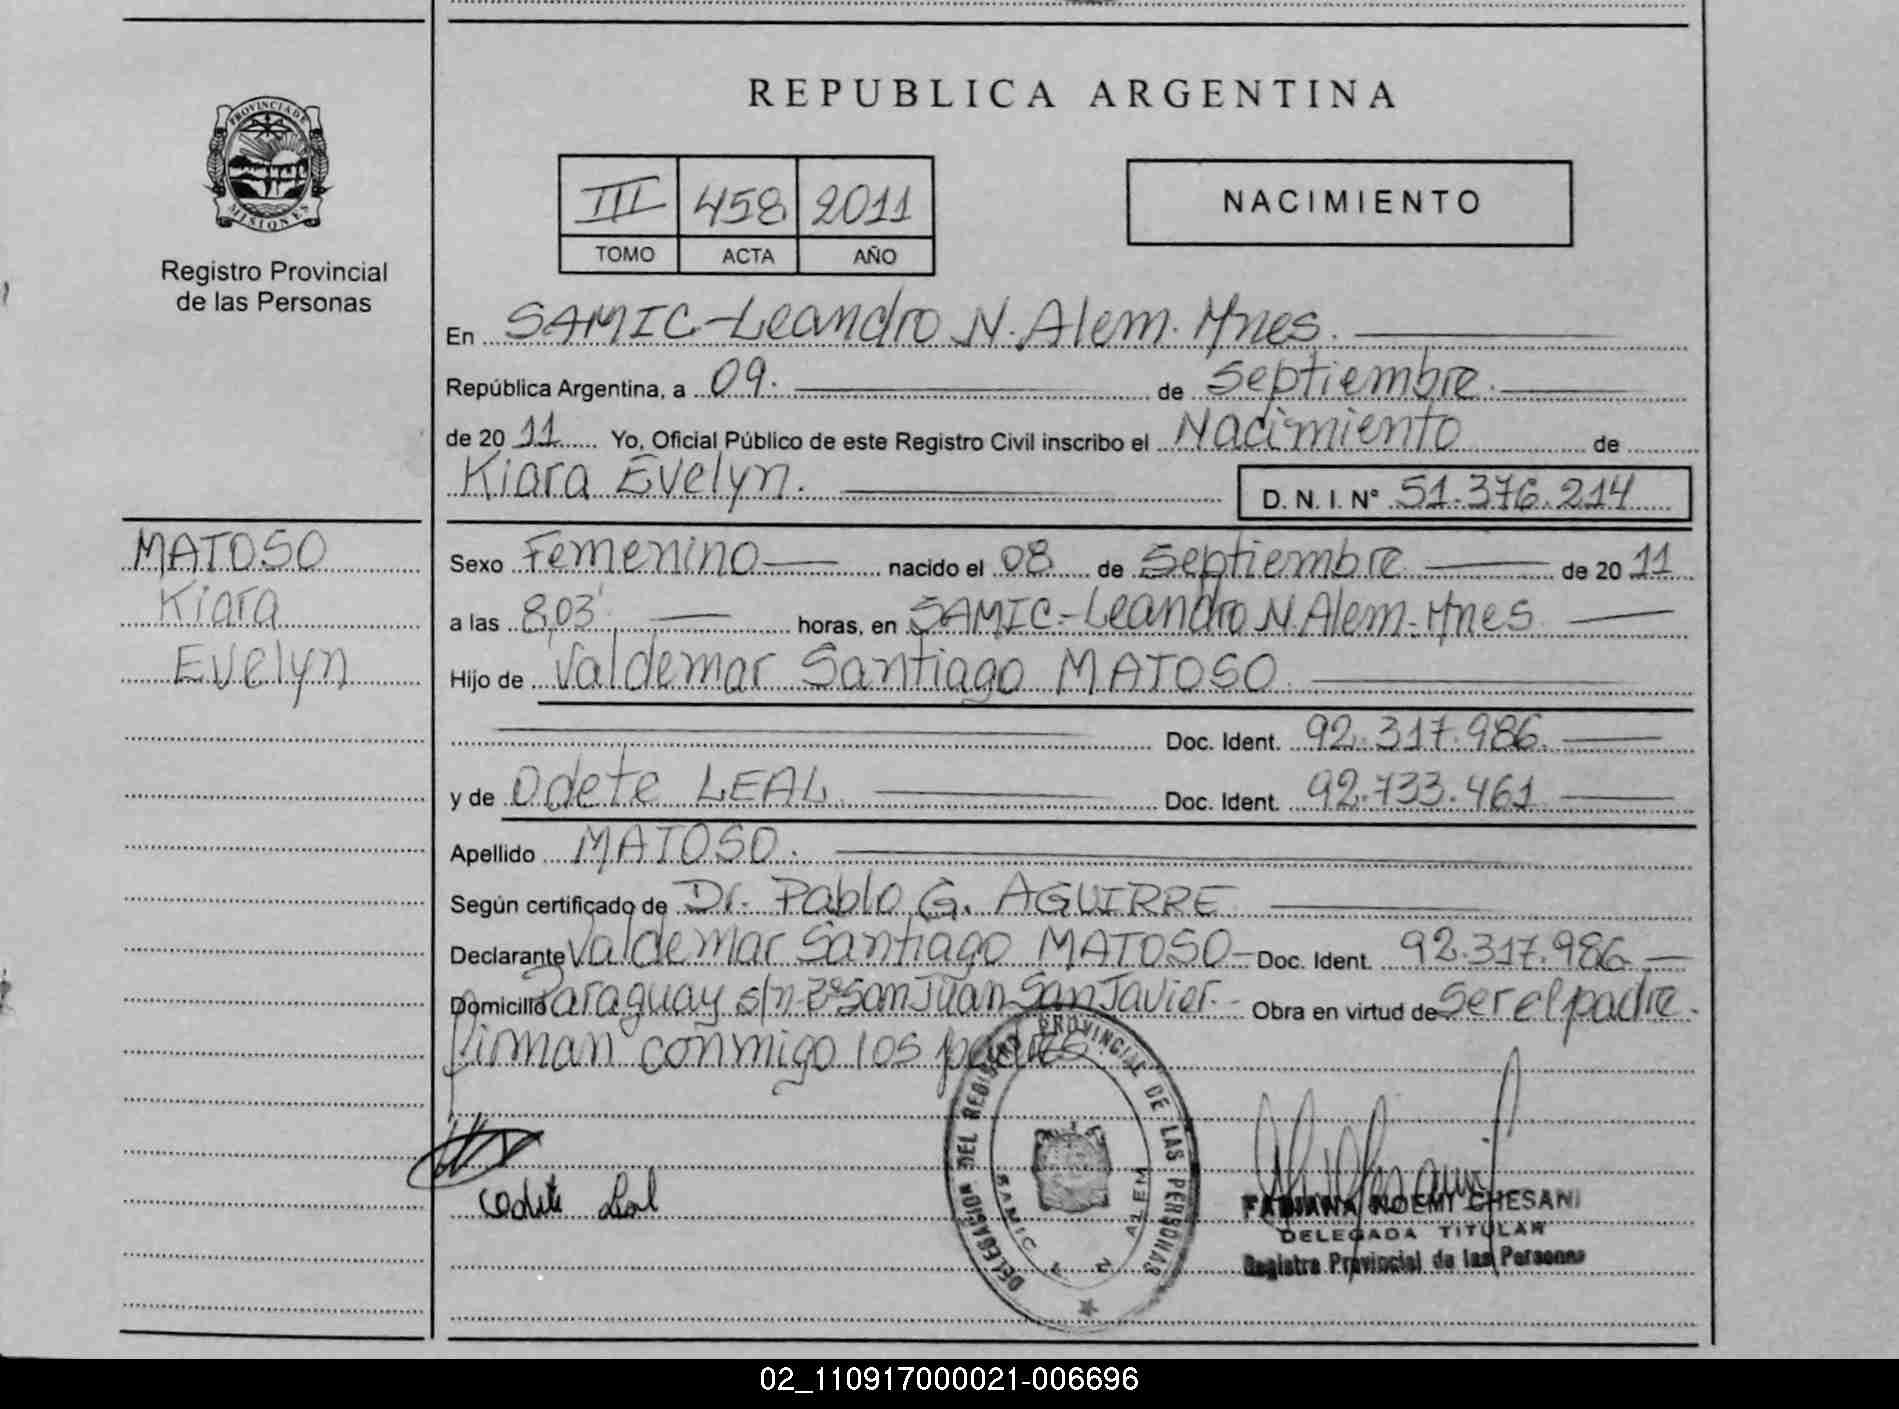 REPUBLICA ARGENTINA
PROVINCIA DE
MISIONES
Registro Provincial
de las Personas
III 458 2011
TOMO ACTA AÑO
NACIMIENTO
En SAMIC-Leandro N. Alem. Mnes.
República Argentina, a 09. de Septiembre.
de 20 11 Yo, Oficial Público de este Registro Civil inscribo el Nacimiento de
Kiara Evelyn.
D. N. I. N° 51.376.214
MATOSO
Kiara
Evelyn
Sexo Femenino nacido el 08 de Septiembre de 20 11
a las 8,03' horas, en SAMIC-Leandro N. Alem-Mnes
Hijo de Valdemar Santiago MATOSO
Doc. Ident. 92.317.986.
y de Odete LEAL. Doc. Ident. 92.733.461
Apellido MATOSO.
Según certificado de Dr. Pablo G. AGUIRRE
Declarante Valdemar Santiago MATOSO- Doc. Ident. 92.317.986.
Domicilio Paraguay s/n- San Juan-San Javier.- Obra en virtud de Ser el padre.
firman conmigo los padres
DELEGACION DEL REGISTRO PROVINCIAL DE LAS PERSONAS
SAMIC L. N. ALEM
Odete Leal
FABIANA NOEMI CHESANI
DELEGADA TITULAR
Registro Provincial de las Personas
02_110917000021-006696